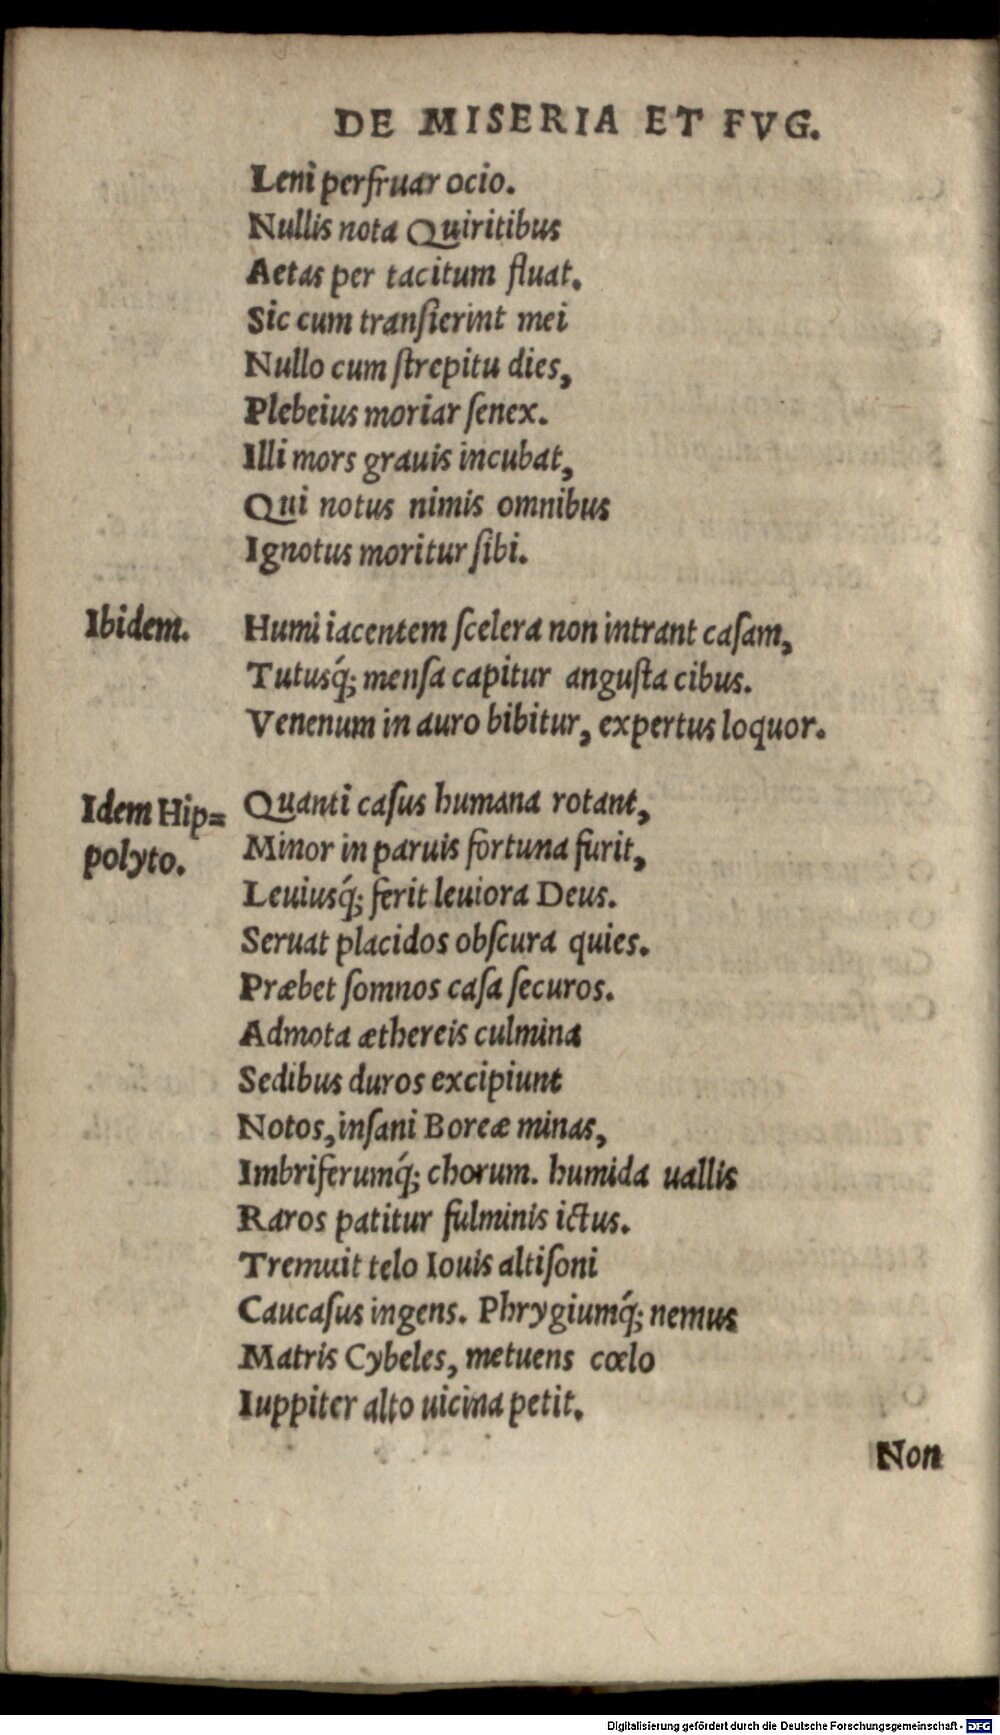 DE MISERIA ET FVG.
Leni perfruar ocio.
Nullis nota Quiritibus
Aetas per tacitum fluat.
Sic cum tranſierint mei
Nullo cum ſtrepitu dies,
Plebeius moriar ſenex.
Illi mors grauis incubat,
Qui notus nimis omnibus
Ignotus moritur ſibi.
Ibidem. Humi iacentem ſcelera non intrant caſam,
Tutusq́; menſa capitur anguſta cibus.
Venenum in auro bibitur, expertus loquor.
Idem Hip= Quanti caſus humana rotant,
polyto. Minor in paruis fortuna furit,
Leuiusq́; ferit leuiora Deus.
Seruat placidos obſcura quies.
Præbet ſomnos caſa ſecuros.
Admota æthereis culmina
Sedibus duros excipiunt
Notos, inſani Boreæ minas,
Imbriferumq́; chorum. humida uallis
Raros patitur fulminis ictus.
Tremuit telo Iouis altiſoni
Caucaſus ingens. Phrygiumq́; nemus
Matris Cybeles, metuens cœlo
Iuppiter alto uicina petit.
Non
Digitalisierung gefördert durch die Deutsche Forschungsgemeinschaft - DFG